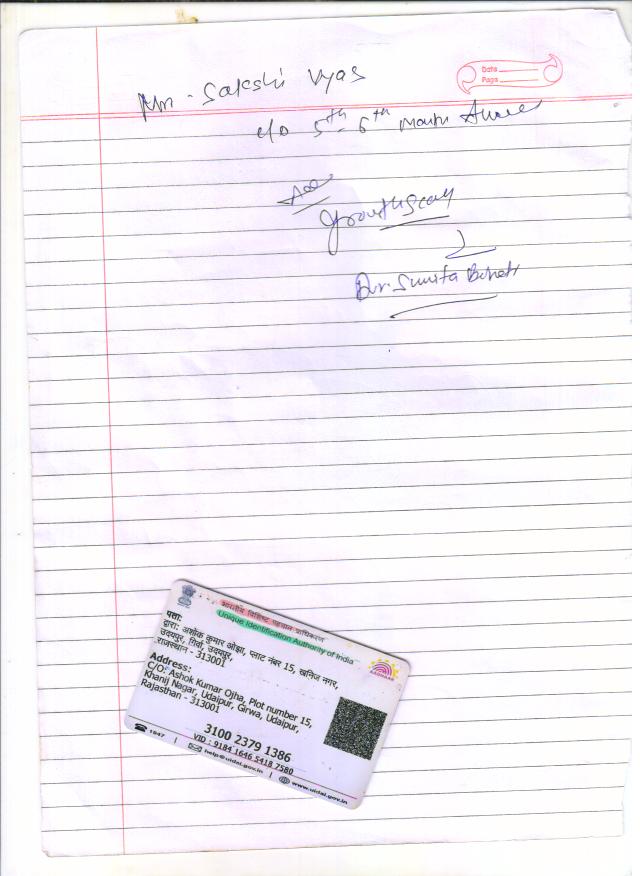 Date
Page
Sakshi Vyas
c/o 5th - 6th Month
Adv
Growth Scan
Dr. Sunita
भारतीय विशिष्ट पहचान प्राधिकरण
Unique Identification Authority of India
AADHAAR
पता:
द्वारा: अशोक कुमार ओझा, प्लाट नंबर 15, खनिज नगर,
उदयपुर, गिर्वा, उदयपुर,
राजस्थान - 313001
Address:
C/O: Ashok Kumar Ojha, Plot number 15,
Khanij Nagar, Udaipur, Girwa, Udaipur,
Rajasthan - 313001
3100 2379 1386
VID : 9184 1646 5418 7580
1947 | help@uidai.gov.in | www.uidai.gov.in